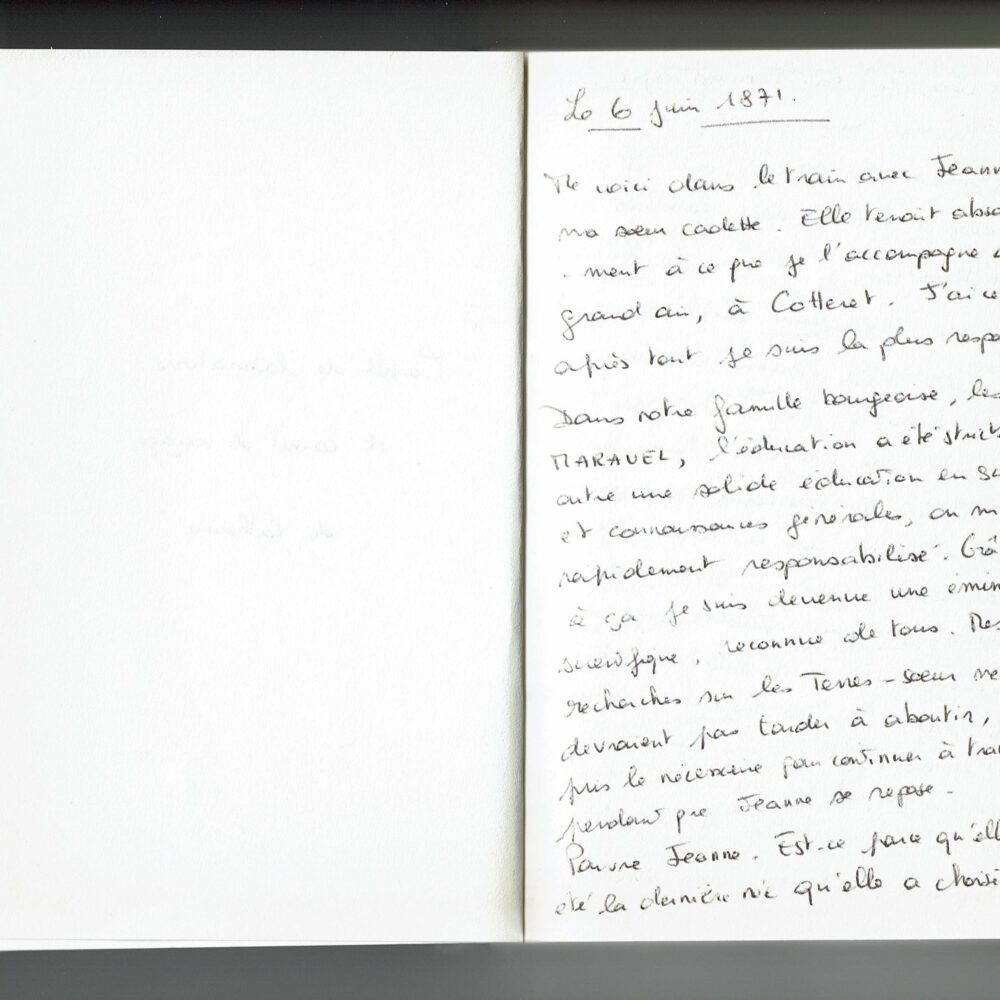 Le 6 juin 1871.
Me voici dans le train avec Jeann
ma sœur cadette. Elle tenait abso
- ment à ce que je l'accompagne
grand air, à Cotteret. J'ai
après tout je suis la plus respo
Dans notre famille bourgeoise, les
MARAVEL, l'éducation a été strict
outre une solide éducation en
et connaissances générales, on m
rapidement responsabilisé. Grâ
à ça je suis devenue une émin
scientifique, reconnue de tous. Mes
recherches sur les Terres-sœur ne
devraient pas tarder à aboutir,
pris le nécessaire pour continuer à tra
pendant que Jeanne se repose.
Pauvre Jeanne. Est-ce parce qu'ell
été la dernière née qu'elle a choisi